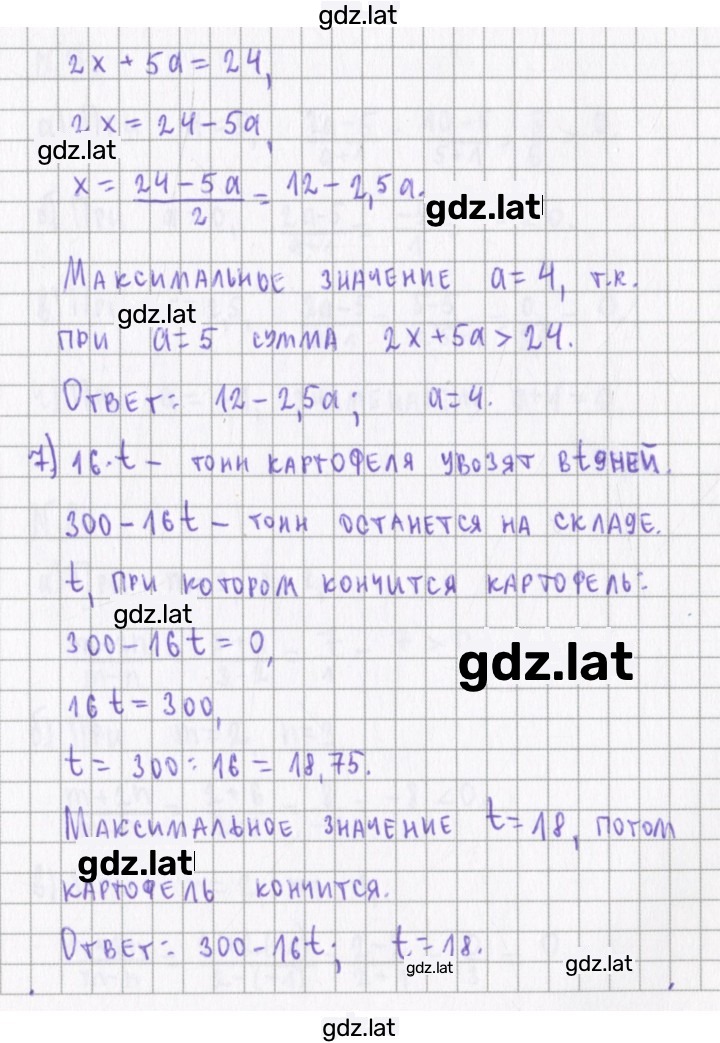 gdz.lat
2x + 5a = 24,
2x = 24 - 5a,
gdz.lat
x = (24 - 5a)/2 = 12 - 2,5a.
gdz.lat
Максимальное значение a = 4, т.к.
gdz.lat
при a = 5 сумма 2x + 5a > 24.
Ответ: 12 - 2,5a; a = 4.
7) 16·t - тонн картофеля увозят в t дней.
300 - 16t - тонн останется на складе.
t, при котором кончится картофель:
gdz.lat
300 - 16t = 0,
gdz.lat
16t = 300,
t = 300 : 16 = 18,75.
Максимальное значение t = 18, потом
gdz.lat
картофель кончится.
Ответ: 300 - 16t; t = 18.
gdz.lat
gdz.lat
gdz.lat